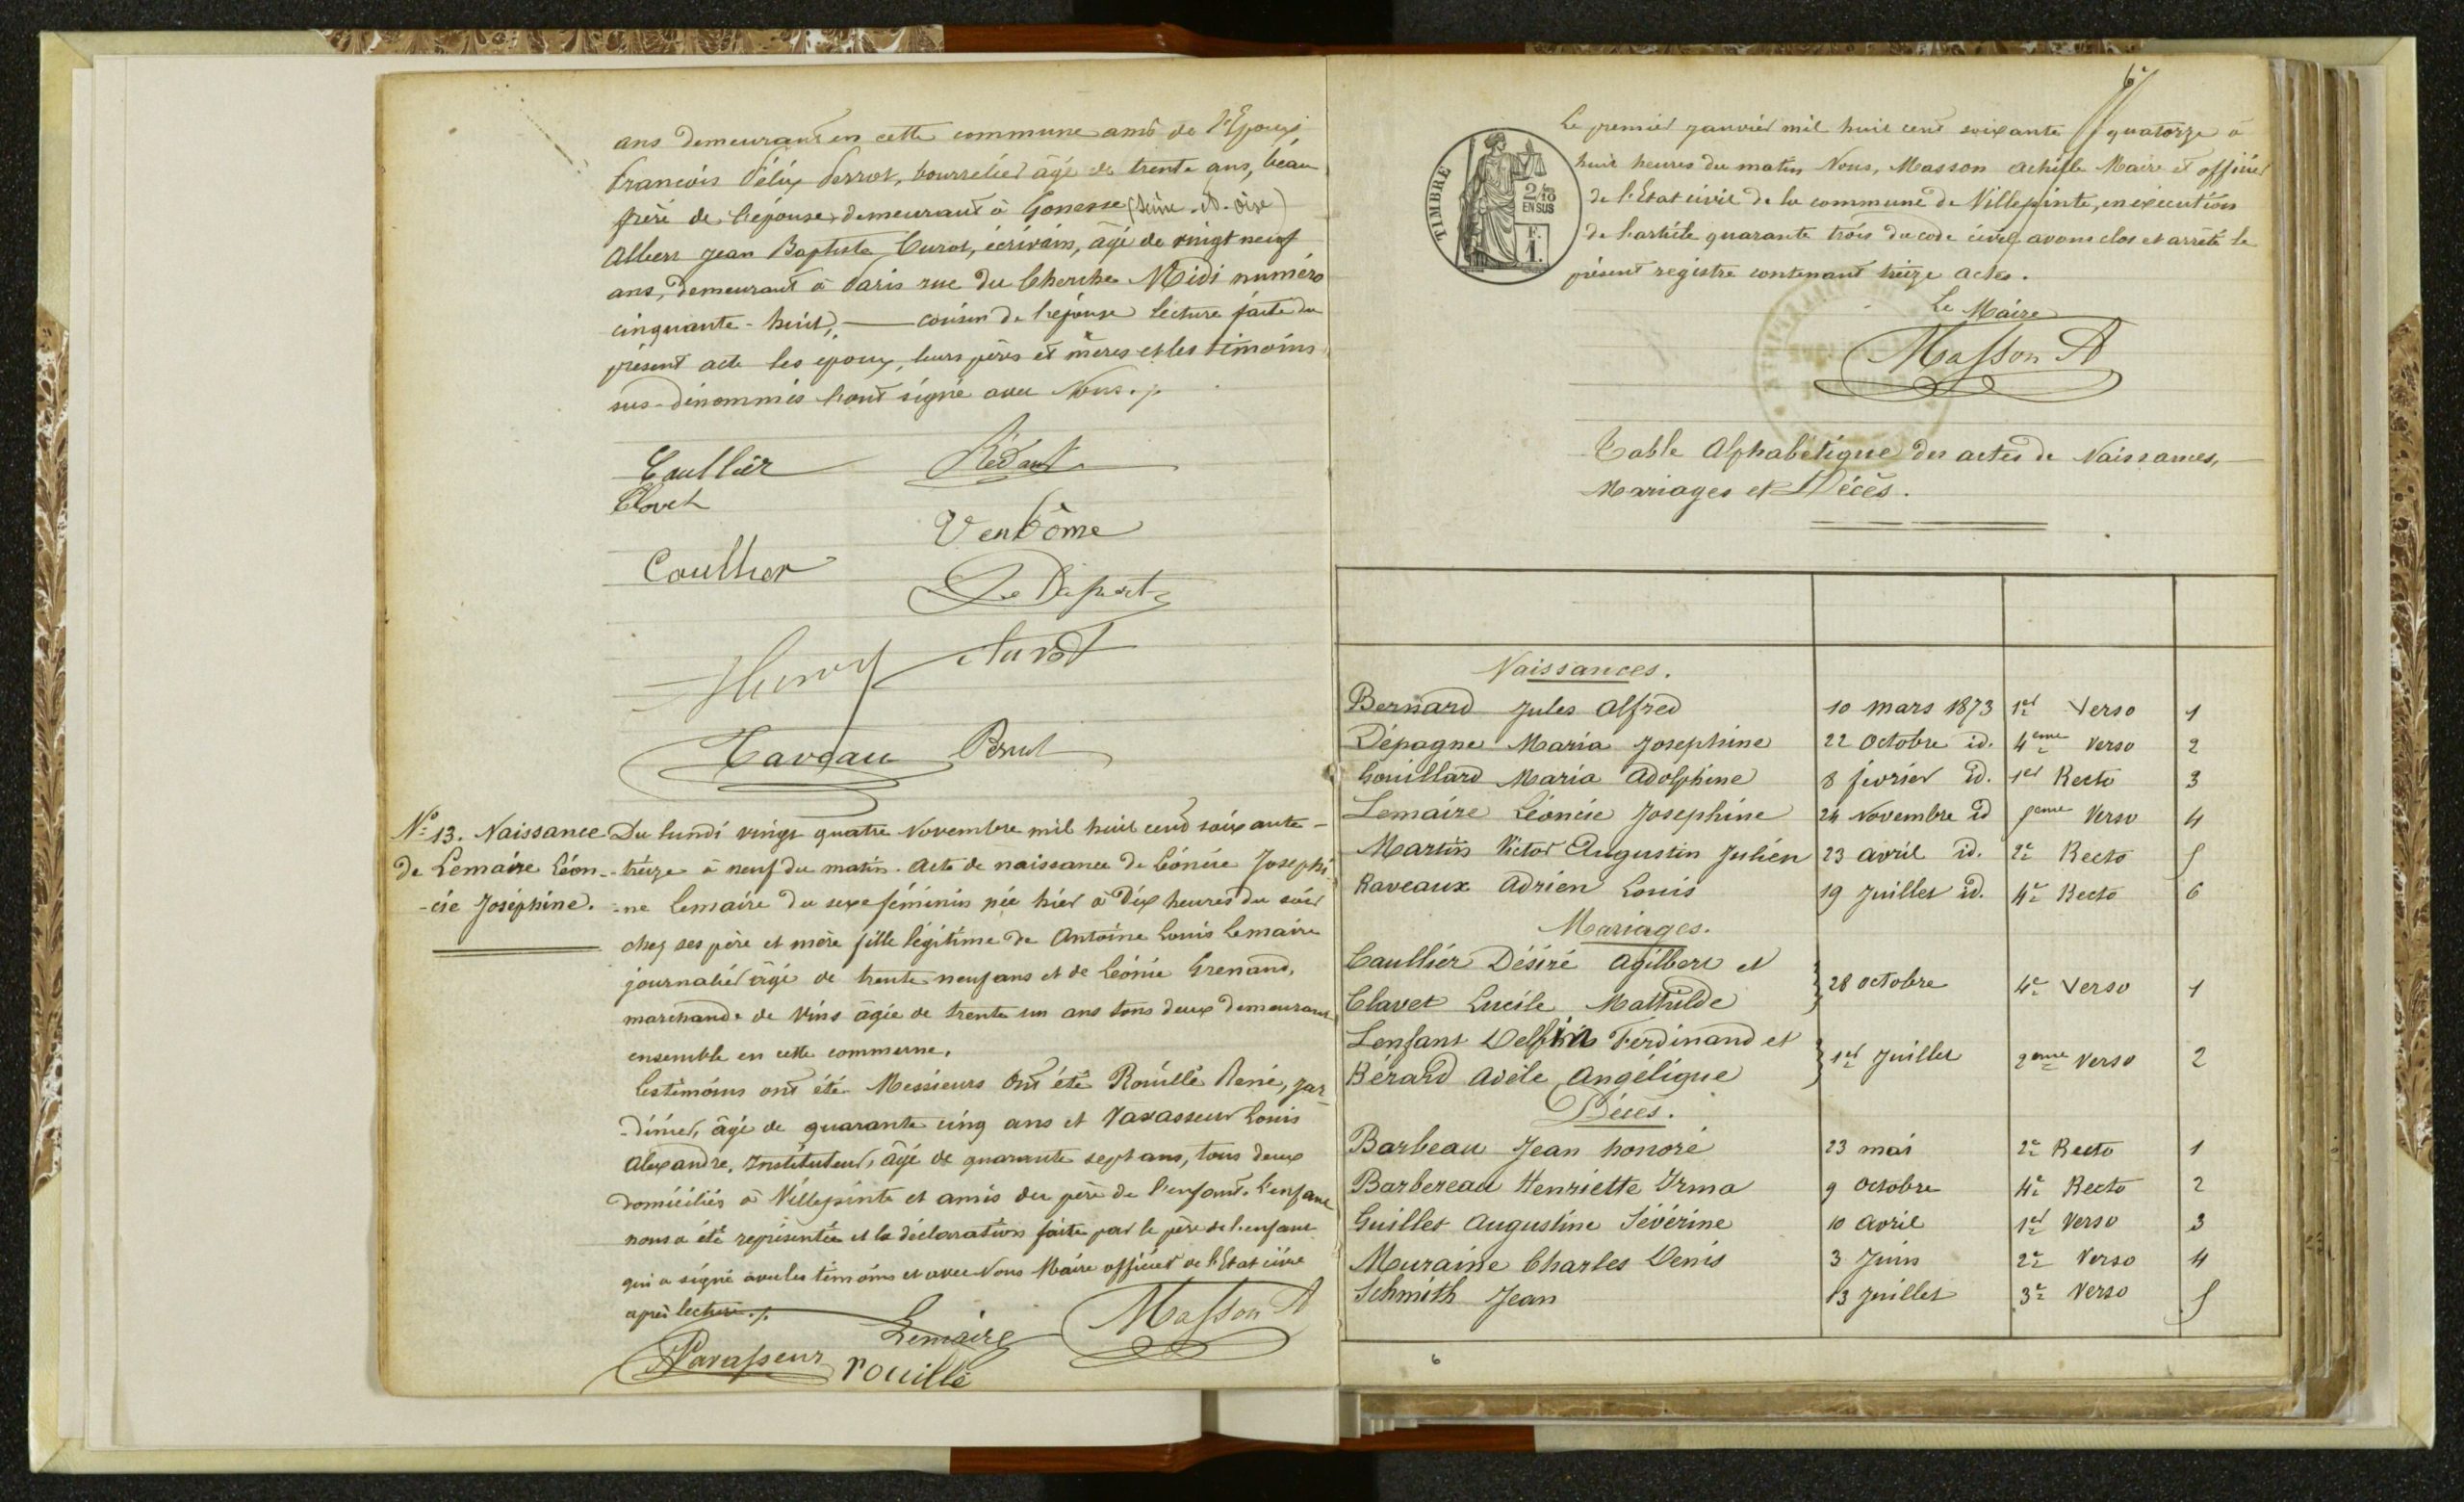 ans demeurant en cette commune ami de l'Epoux
francois Félix Perrot, bourrelier âgé de trente ans, beau
frère de l'épouse demeurant à Gonesse (Seine-et-Oise)
Albert Jean Baptiste Curot, écrivain, âgé de vingt neuf
ans, demeurant à Paris rue du Cherche Midi numéro
cinquante-huit, — cousin de l'épouse lecture faite du
présent acte les epoux, leurs pères et mères et les témoins
sus-dénommés l'ont signé avec Nous./.
Caullier
Clavet
Vendôme
Caullier
Curot
N° 13. Naissance
de Lemaire Léon-
-cie Joséphine.
Du lundi vingt quatre Novembre mil huit cent soixante-
-treize à neuf du matin. Acte de naissance de Léoncie Josephi-
-ne Lemaire du sexe féminin née hier à Dix heures du soir
chez ses père et mère fille légitime de Antoine Louis Lemaire
journalier âgé de trente neuf ans et de Léonie Grenand,
marchande de Vins âgée de trente un ans tous deux demeurant
ensemble en cette commune.
Les témoins ont été Messieurs Ont été Rouillé René, jar-
-dinier, âgé de quarante cinq ans et Vavasseur Louis
Alexandre, Instituteur, âgé de quarante sept ans, tous deux
domiciliés à Villepinte et amis du père de l'enfant. L'enfant
nous a été représentée et la déclaration faite par le père de l'enfant
qui a signé avec les témoins et avec Nous Maire officier de l'Etat civil
après lecture./.
Lemaire Masson A
Vavasseur rouillé
6e
TIMBRE
2/10
EN SUS
F.
1.
Le premier Janvier mil huit cent soixante quatorze à
huit heures du matin Nous, Masson Achille Maire et officier
de l'Etat civil de la commune de Villepinte, en exécution
de l'article quarante trois du code civil avons clos et arrêté le
présent registre contenant treize actes.
Le Maire
Masson A
Table Alphabétique des actes de Naissances,
Mariages et Décès.
Naissances.
Bernard Jules Alfred 10 Mars 1873 1er Verso 1
Dépagne Maria Josephine 22 Octobre id. 4eme Verso 2
Gouillard Maria Adolphine 8 février id. 1er Recto 3
Lemaire Léoncie Josephine 24 Novembre id 5eme Verso 4
Martin Victor Augustin Julien 23 avril id. 2e Recto 5
Raveaux Adrien Louis 19 Juillet id. 4e Recto 6
Mariages.
Caullier Désiré Agilbert et
Clavet Lucile Mathilde 28 octobre 4e Verso 1
Lenfant Delfin Ferdinand et
Bérard Adèle Angélique 1er Juillet 2eme Verso 2
Décès.
Barbeau Jean honoré 23 mai 2e Recto 1
Barbereau Henriette Irma 9 Octobre 4e Recto 2
Guillet Augustine Sévérine 10 Avril 1er Verso 3
Meuraine Charles Denis 3 Juin 2e Verso 4
Schmith Jean 13 Juillet 3e Verso 5
6